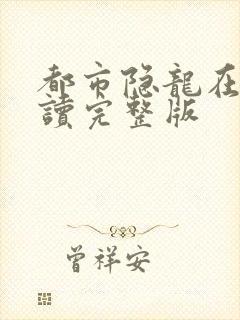 都市隐龍在
讀完整版
曾祥安